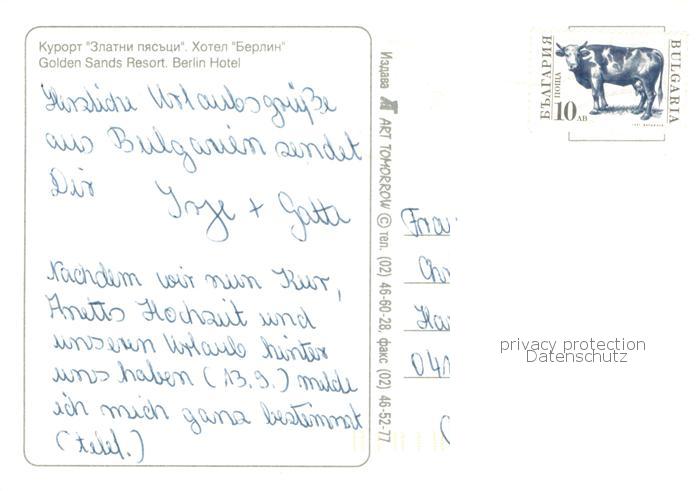 Курорт "Златни пясъци". Хотел "Берлин"
Golden Sands Resort. Berlin Hotel
Herzliche Urlaubsgrüße
aus Bulgarien sendet
Dir Inge + Gatte
Nachdem wir nun Kur,
Anetts Hochzeit und
unseren Urlaub hinter
uns haben (13.9.) melde
ich mich ganz bestimmt
(telef.)
Издава ART TOMORROW © тел. (02) 46-60-28, факс (02) 46-52-77
БЪЛГАРИЯ
ПОЩА
10 ЛВ
BULGARIA
Frau
Chr
Ha
041
privacy protection
Datenschutz